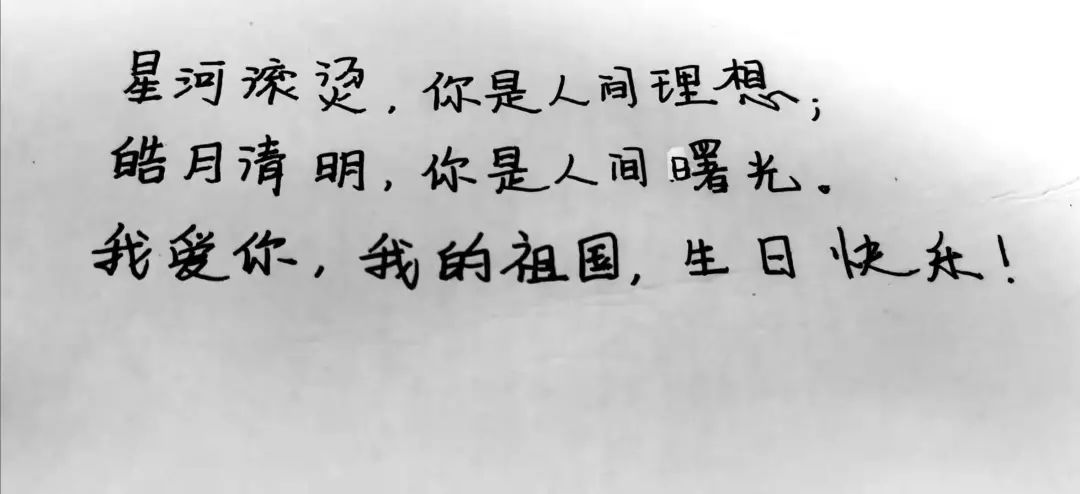 星河滚烫，你是人间理想；
皓月清明，你是人间曙光。
我爱你，我的祖国，生日快乐！